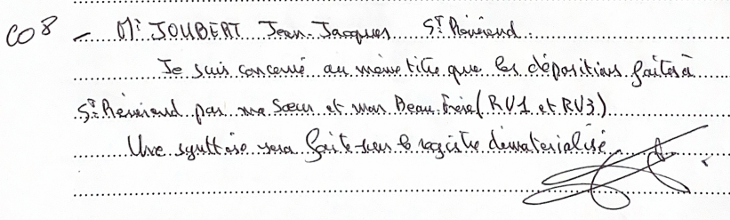 CO8 - Mr JOUBERT Jean-Jacques St Révérend.
Je suis concerné au même titre que les dépositions faites à
St Révérend par ma Sœur et mon Beau Frère (RV1 et RV3)
Une synthèse sera faite sur le registre dématérialisé.